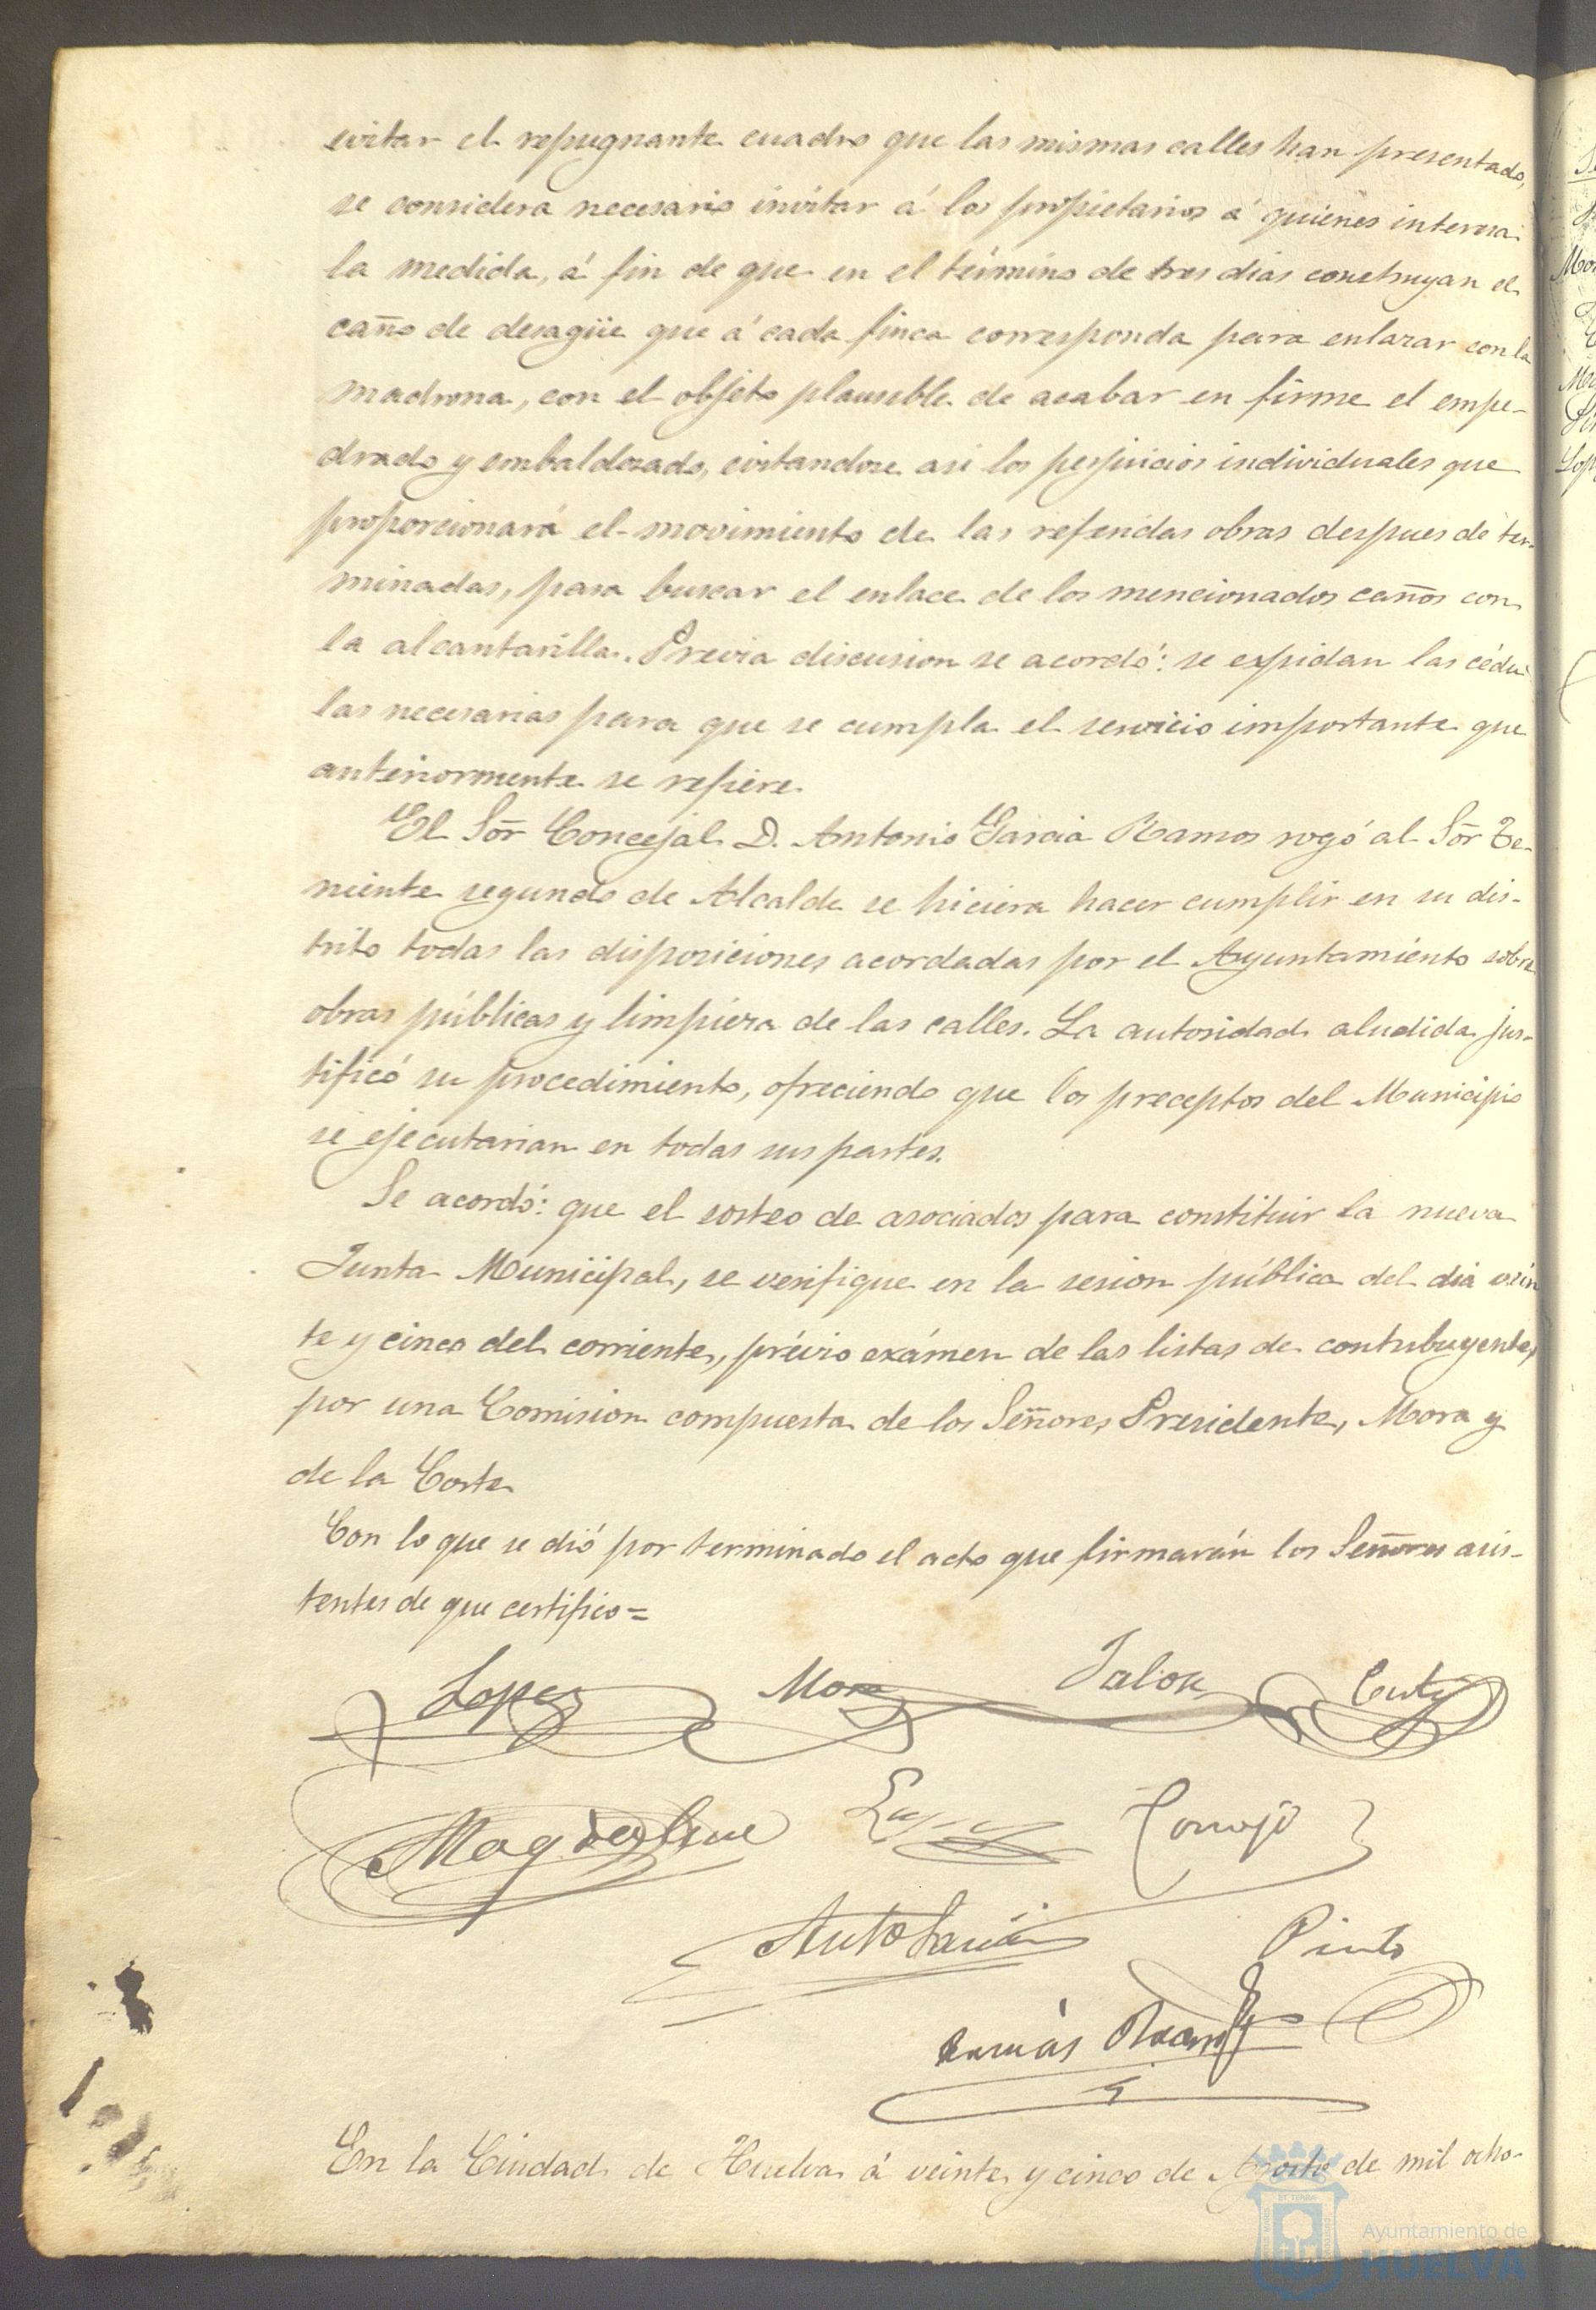 evitar el repugnante cuadro que las mismas calles han presentado,
se considera necesario invitar á los propietarios á quienes interesa
la medida, á fin de que en el término de tres dias construyan el
caño de desagüe que á cada finca corresponda para enlazar con la
madrona, con el objeto plausible de acabar en firme el empe-
drado y embaldosado, evitandose asi los perjuicios individuales que
proporcionará el movimiento de las referidas obras despues de ter-
minadas, para buscar el enlace de los mencionados caños con
la alcantarilla. Previa discusion se acordó: se expidan las cédu-
las necesarias para que se cumpla el servicio importante que
anteriormente se refiere.
El Sōr Concejal D. Antonio Garcia Ramos rogó al Sōr Te-
niente segundo de Alcalde se hiciera hacer cumplir en su dis-
trito todas las disposiciones acordadas por el Ayuntamiento sobre
obras públicas y limpieza de las calles. La autoridad aludida jus-
tificó su procedimiento, ofreciendo que los preceptos del Municipio
se ejecutarian en todas sus partes.
Se acordó: que el sorteo de asociados para constituir la nueva
Junta Municipal, se verifique en la sesion pública del dia vein
te y cinco del corriente, prévio exámen de las listas de contribuyentes
por una Comision compuesta de los Señores Presidente, Mora y
de la Corte
Con lo que se dió por terminado el acto que firmarán los Señores asis-
tentes de que certifico=
Lopez Mora Jalon
Cornejo
Antº Garcia Pinto
Tomás
En la Ciudad de Huelva á veinte y cinco de Agosto de mil ocho-
Ayuntamiento de
HUELVA